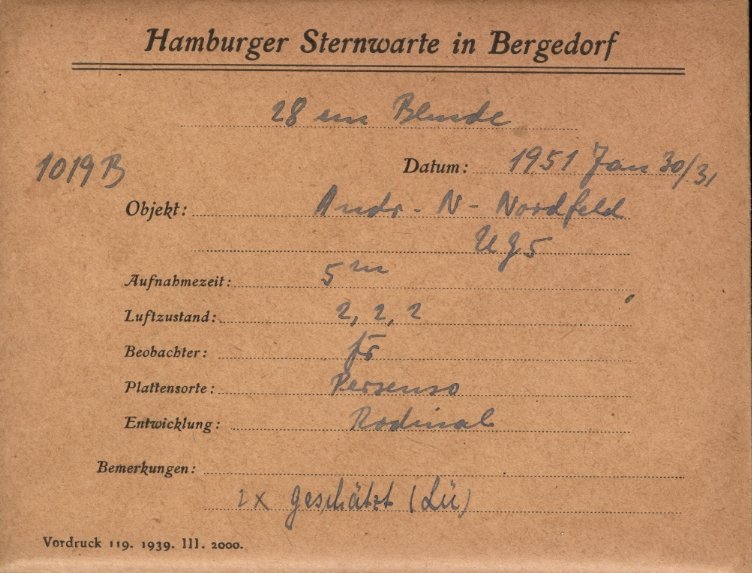 Hamburger Sternwarte in Bergedorf
28 cm Blende
1019 B
Datum: 1951 Jan 30/31
Objekt: Andr - N - Nordfeld
UG5
Aufnahmezeit: 5 m
Luftzustand: 2, 2, 2
Beobachter:
Plattensorte: Persenso
Entwicklung: Rodinal
Bemerkungen:
2x geschätzt (Lü)
Vordruck 119. 1939. III. 2000.